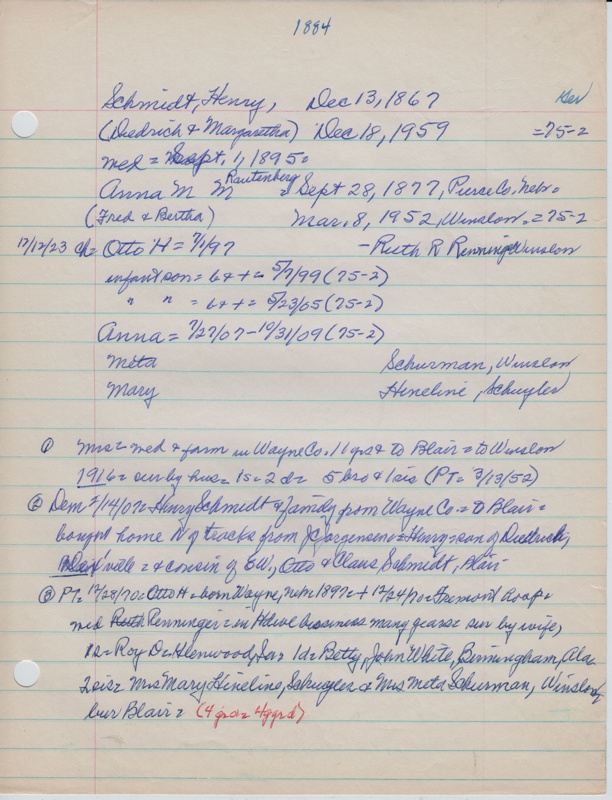 1884
Schmidt, Henry, Dec 13, 1867 Ger
(Diedrich & Margaretha) Dec 18, 1959 =75-2
med = Sept, 1, 1895.
Anna M M Rautenberg = Sept 28, 1877, Pierce Co, Nebr.
(Fred & Bertha) Mar. 8, 1952, Winslow. = 75-2
12/12/23 ch= Otto H = 7/1/97 - Ruth R Renninger Winslow
infant son = b & + = 5/7/99 (75-2)
" " = b & + = 5/23/05 (75-2)
Anna = 7/27/07 - 10/31/09 (75-2)
Meta Schurman, Winslow
Mary Hineline, Schuyler
① Mrs = med & farm in Wayne Co. 11 yrs & to Blair = to Winslow
1916 = sur by hus = 1s = 2d = 5 bro & 1 sis (PT = 3/13/52)
② Dem 2/14/07 = Henry Schmidt & family from Wayne Co = to Blair =
bought home N of tracks from J Jorgensen = Henry = son of Diedrich,
ville = & cousin of EW, Otto & Claus Schmidt, Blair
③ PT = 12/28/70 = Otto H = born Wayne, 1897 = + 12/24/70 = Fremont &
med Ruth Renninger = in business many years = sur by wife,
1s = Roy D = Glenwood, Ia = 1d = Betty, John White, Birmingham, Ala
2 sis = Mrs Mary Hineline, Schuyler & Mrs Meta Schurman, Winslow
bur Blair = (4 grd = 4 ggrd)